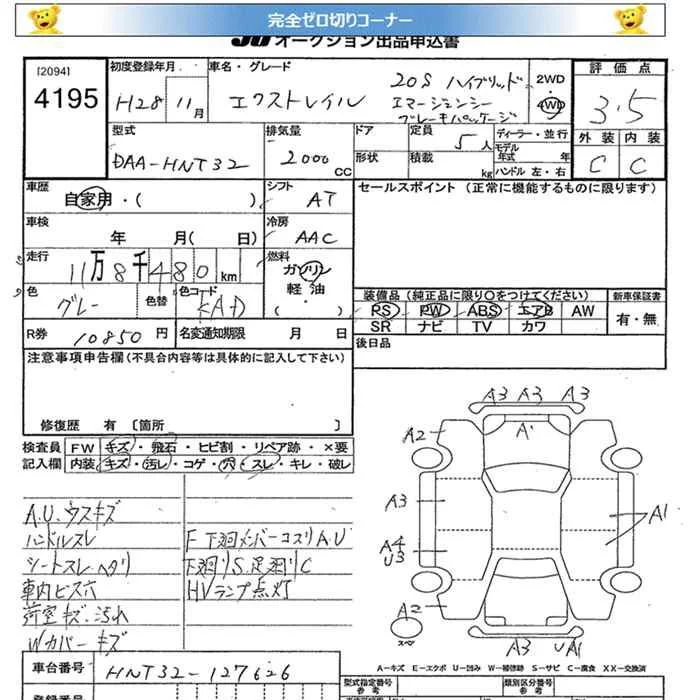 完全ゼロ切りコーナー
JU オークション出品申込書
[2094]
4195
初度登録年月
H28 11月
車名・グレード
エクストレイル
20S ハイブリッド
エマージェンシー
ブレーキパッケージ
2WD
・
4WD
評価点
3.5
外装 内装
C C
型式
DAA-HNT32
排気量
2000 CC
ドア
形状
定員 5人
積載 kg
ディーラー・並行
モデル
年式 年
ハンドル 左・右
車歴
自家用・( )
シフト
AT
セールスポイント (正常に機能するものに限ります)
車検
年 月( 日)
冷房
AAC
走行
11万8千480km
燃料
ガソリン
軽・油
( ・ )
色
グレー
色替
色コード
KAD
装備品(純正品に限り○をつけてください)
新車保証書
PS PW ABS エアB AW
SR ナビ TV カワ
有・無
R券 10850円
名変通知期限 月 日
後日品
注意事項申告欄(不具合内容等は具体的に記入して下さい)
修復歴 有〔箇所 〕
検査員 FW キズ・飛石・ヒビ割・リペア跡・×要
記入欄 内装 キズ・汚レ・コゲ・穴・スレ・キレ・破レ
A.U.ウスキズ
ハンドルスレ
シートスレ ヘタリ
車内ビス穴
荷室キズ・汚れ
Wカバーキズ
F下廻メンバーコスリA.U
下廻リS.足廻リC
HVランプ点灯
A3 A3 A3
A2
A'
A3
A4
U3
A1
A2
スペ
A3 UA1
A-キズ E-エクボ U-凹み W-補修跡 S-サビ C-腐食 XX-交換済
車台番号 HNT32-127626
登録番号
型式指定番号
参考
類別区分番号
参考